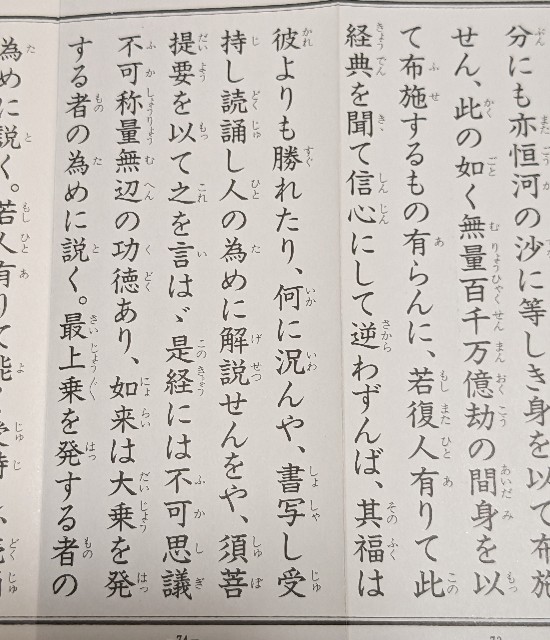 分にも亦恒河の沙に等しき身を以て布施
せん、此の如く無量百千万億劫の間身を以
て布施するもの有らんに、若復人有りて此
経典を聞て信心にして逆わずんば、其福は
彼よりも勝れたり、何に況んや、書写し受
持し読誦し人の為めに解説せんをや、須菩
提要を以て之を言はゞ是経には不可思議
不可称量無辺の功徳あり、如来は大乗を発
する者の為めに説く。最上乗を発する者の
為めに説く。若人有りて能